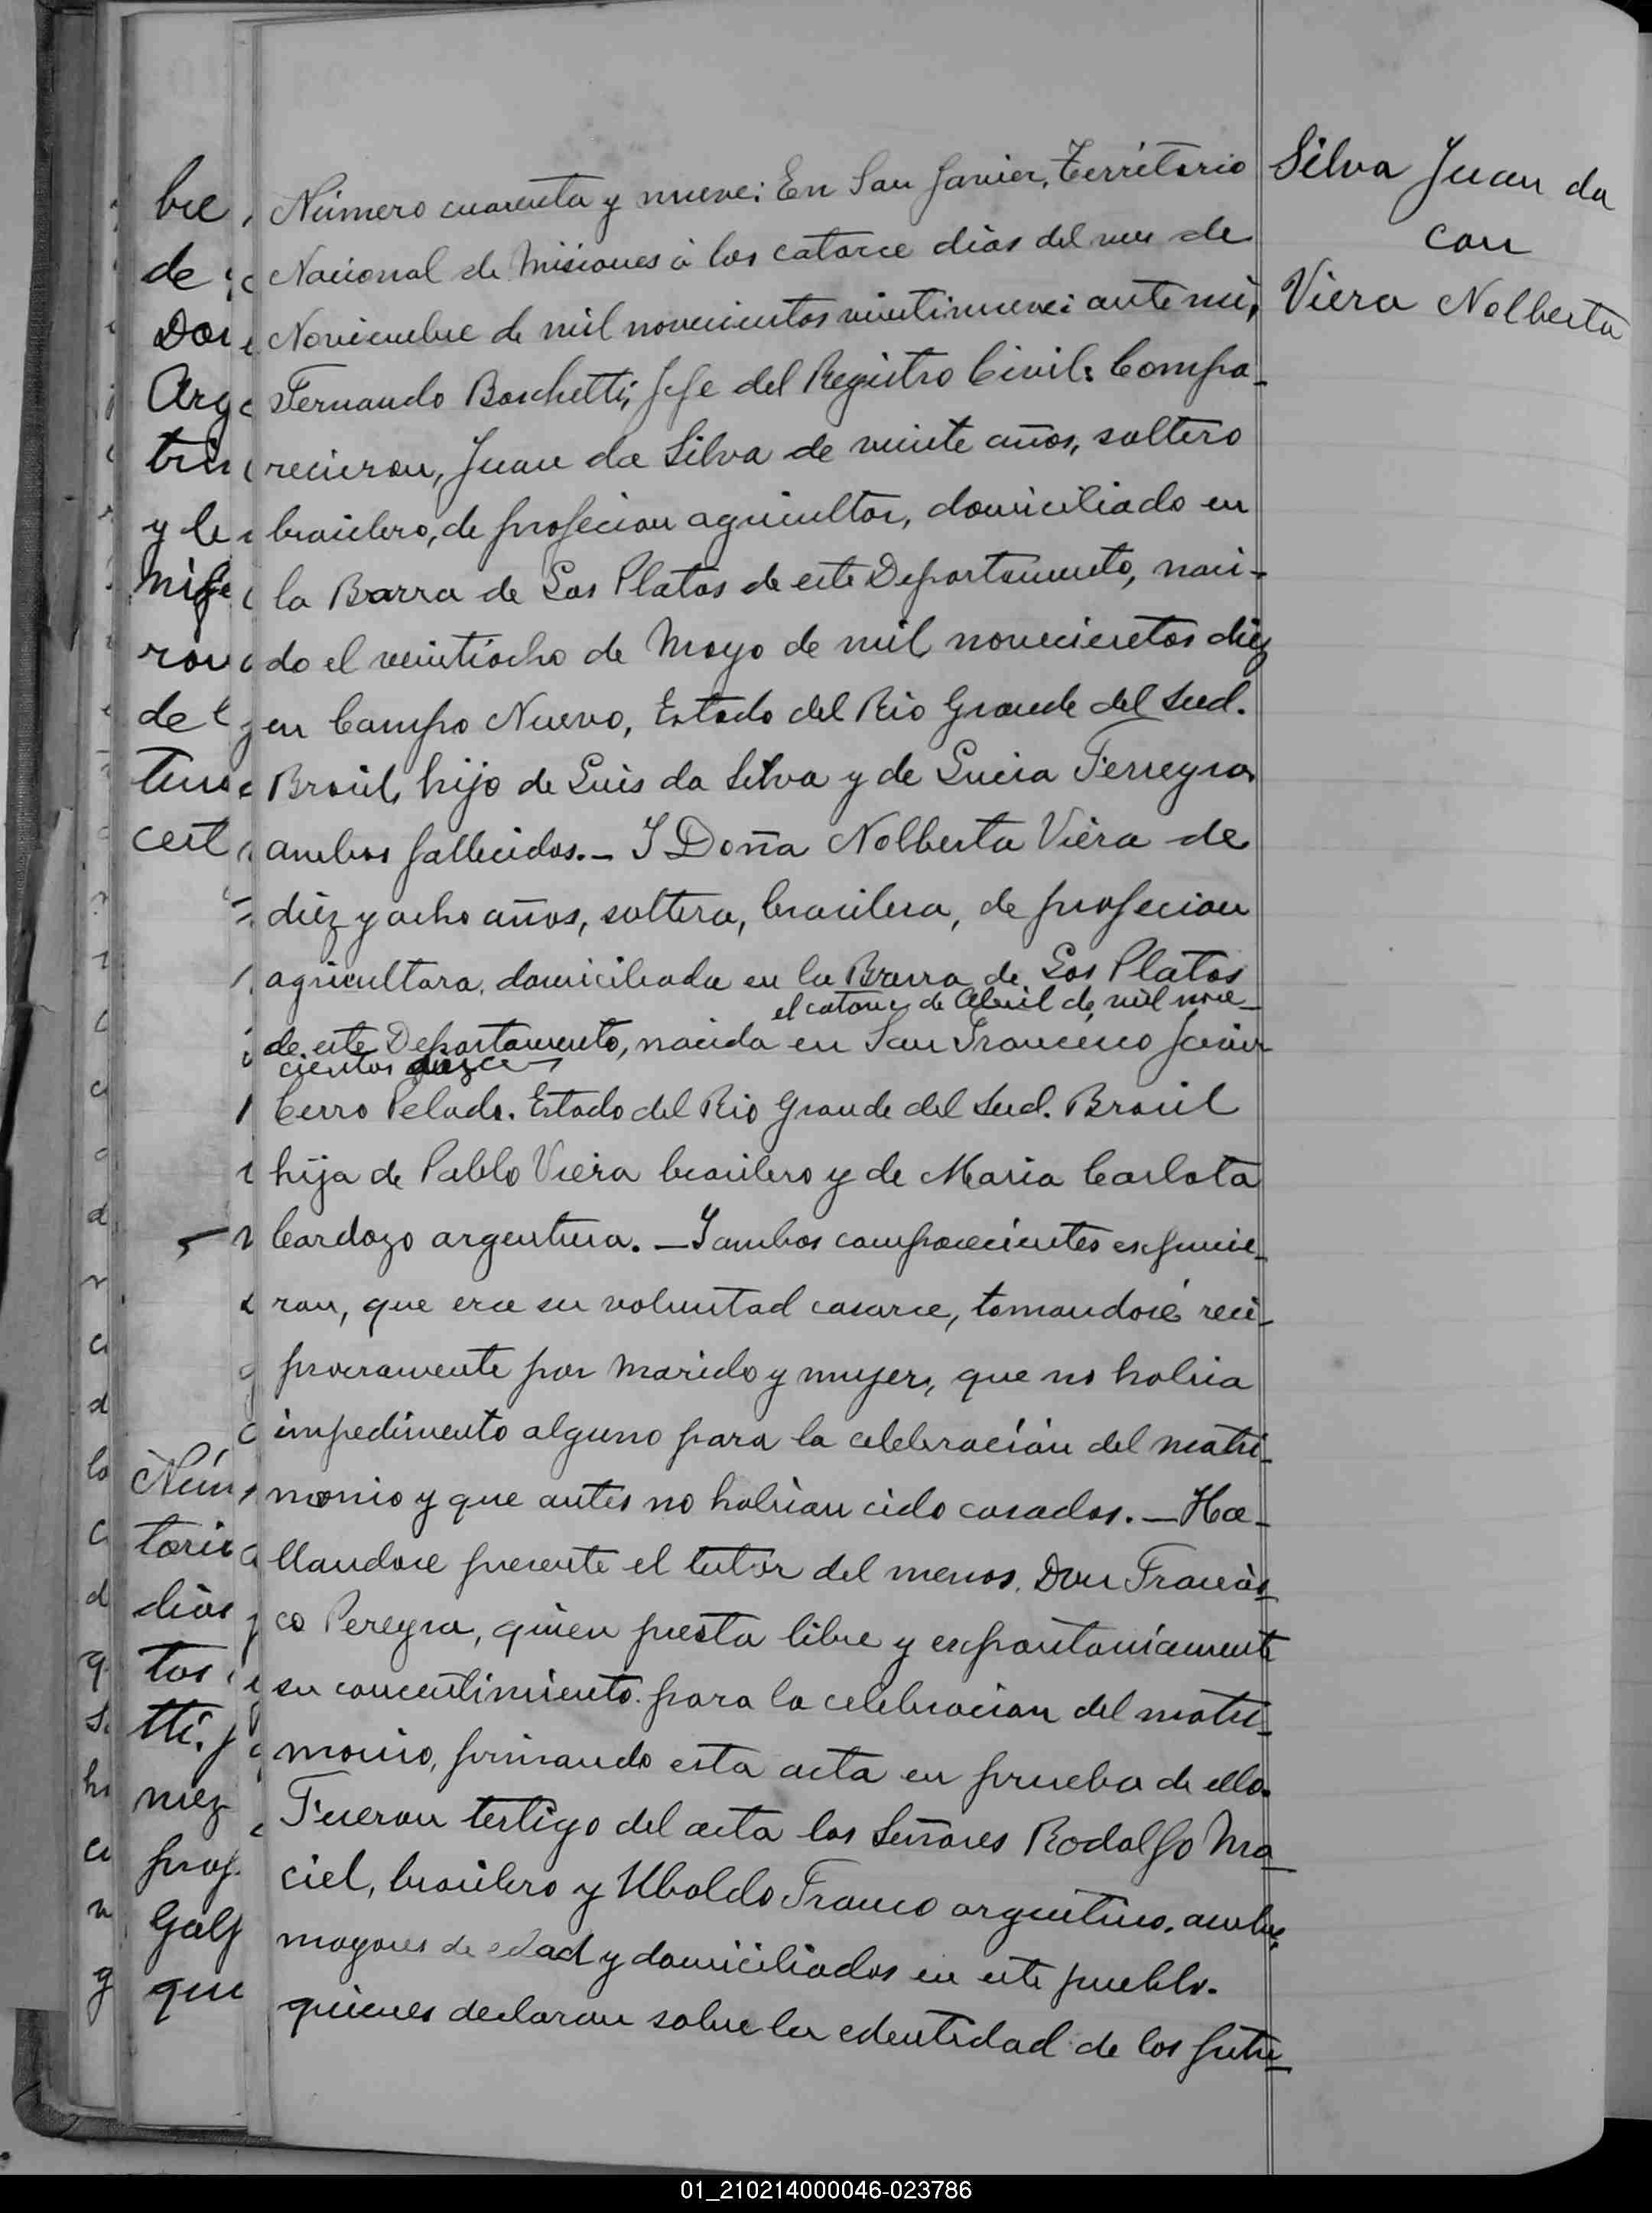 Silva Juan da
con
Viera Nolberta
Número cuarenta y nueve: En San Javier, Territorio
Nacional de Misiones á los catorce dias del mes de
Noviembre de mil novecientos veintinueve: ante mi,
Fernando Boschetti, Jefe del Registro Civil: Compa-
recieron, Juan da Silva de veinte años, soltero
brasilero, de profecion agricultor, domiciliado en
la Barra de Las Platas de este Departamento, naci-
do el veintiocho de Mayo de mil novecientos diez
en Campo Nuevo, Estado del Rio Grande del Sud.
Brasil, hijo de Luis da Silva y de Lucia Ferreyra
ambos fallecidos.- I Doña Nolberta Viera de
diez y ocho años, soltera, brasilera, de profecion
agricultora, domiciliada en la Barra de Las Platas
el catorce de Abril de mil nove-
de este Departamento, nacida en San Francisco Javier
cientos
Cerro Pelado. Estado del Rio Grande del Sud. Brasil
hija de Pablo Viera brasilero y de Maria Carlota
Cardozo argentina. - I ambos comparecientes expucie-
ron, que era su voluntad casarce, tomandosé reci-
procramente por marido y mujer, que no habia
impedimento alguno para la celebración del matri-
monio y que antes no habian cido casados. - Ha-
llandose presente el tutór del menor. Don Francis-
co Pereyra, quien presta libre y expontaniamente
su concentimiento para la celebracion del matri-
monio, firmando esta acta en prueba de ello.
Fueron testigo del acta los Señores Rodolfo Ma-
ciel, brasilero y Ubaldo Franco argentino, ambos
mayores de edad y domiciliados en este pueblo.
quienes declaran sobre la edentidad de los futu-
bre
de
Don
Arg
y de
de
cert
Núm
torio
dias
tos
tti.
mez
prof
Galf
que
01_210214000046-023786